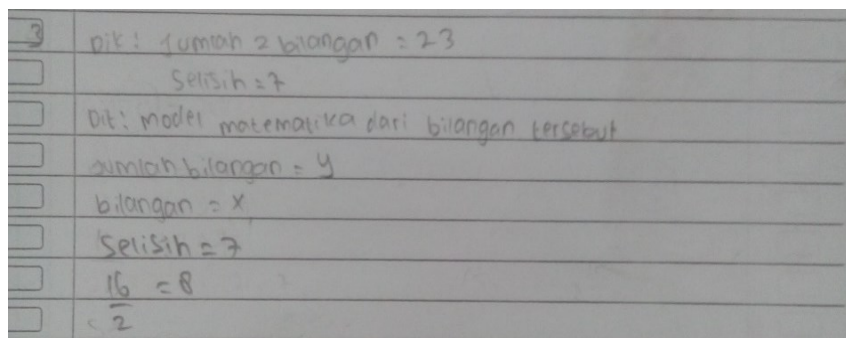 3
Dik: Jumlah 2 bilangan = 23
Selisih = 7
Dit: model matematika dari bilangan tersebut
Jumlah bilangan = y
bilangan = x
Selisih = 7
16/2 = 8